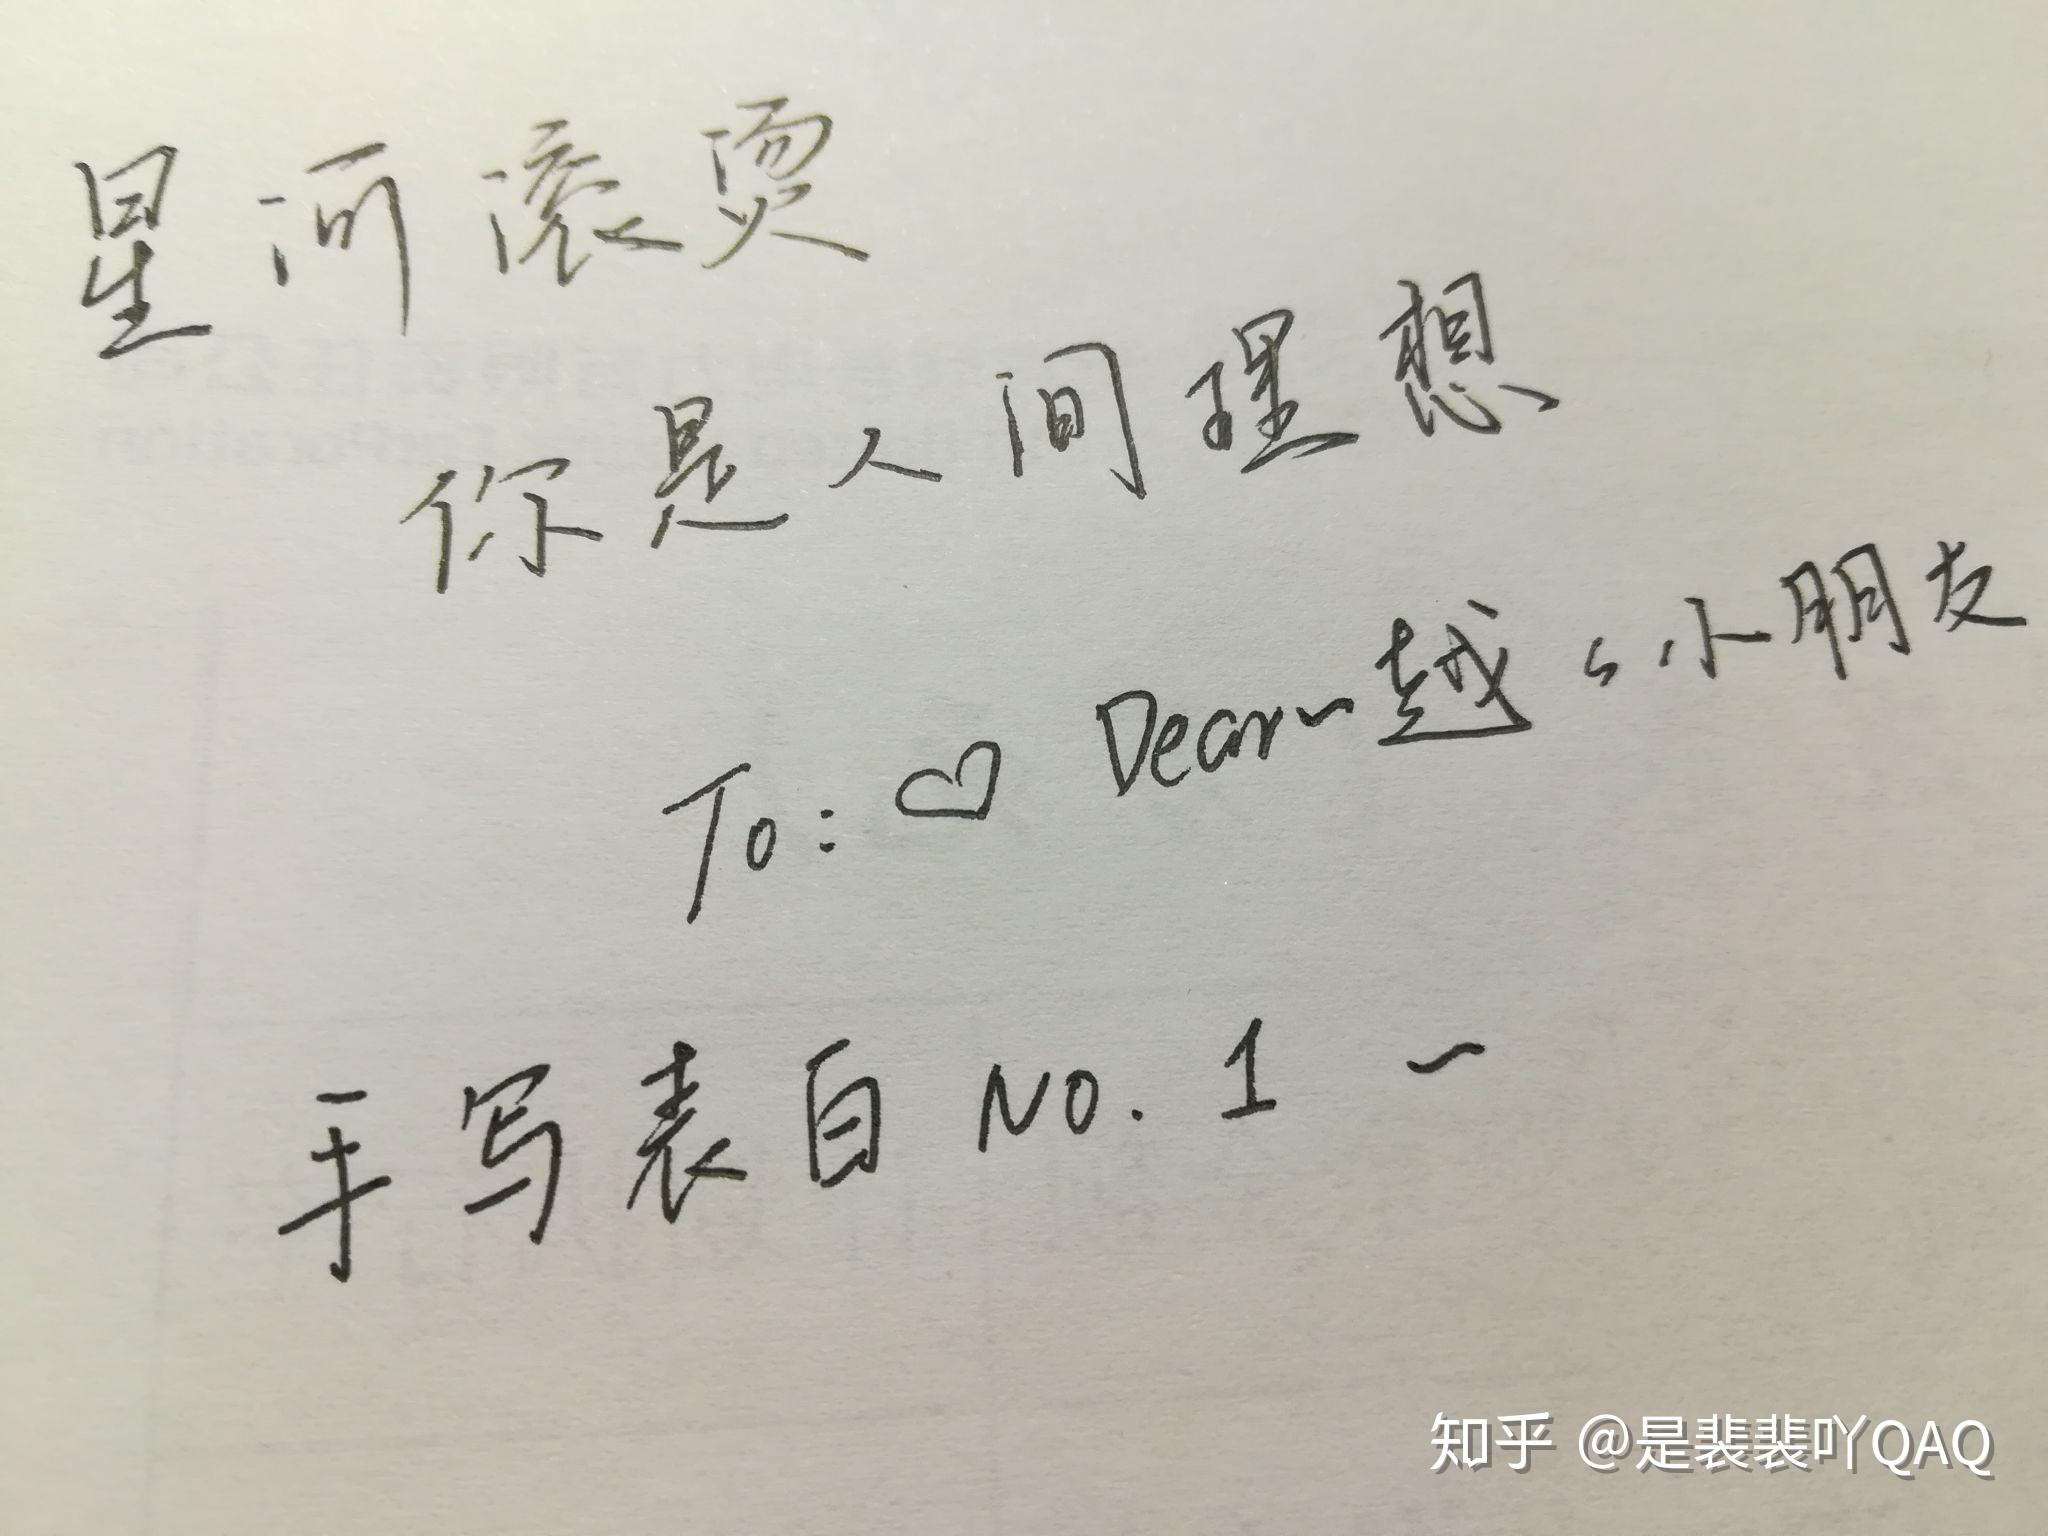 星河滚烫
你是人间理想
To: ♡ Dear~越々小朋友
手写表白 No. 1 ~
知乎 @是裴裴吖QAQ